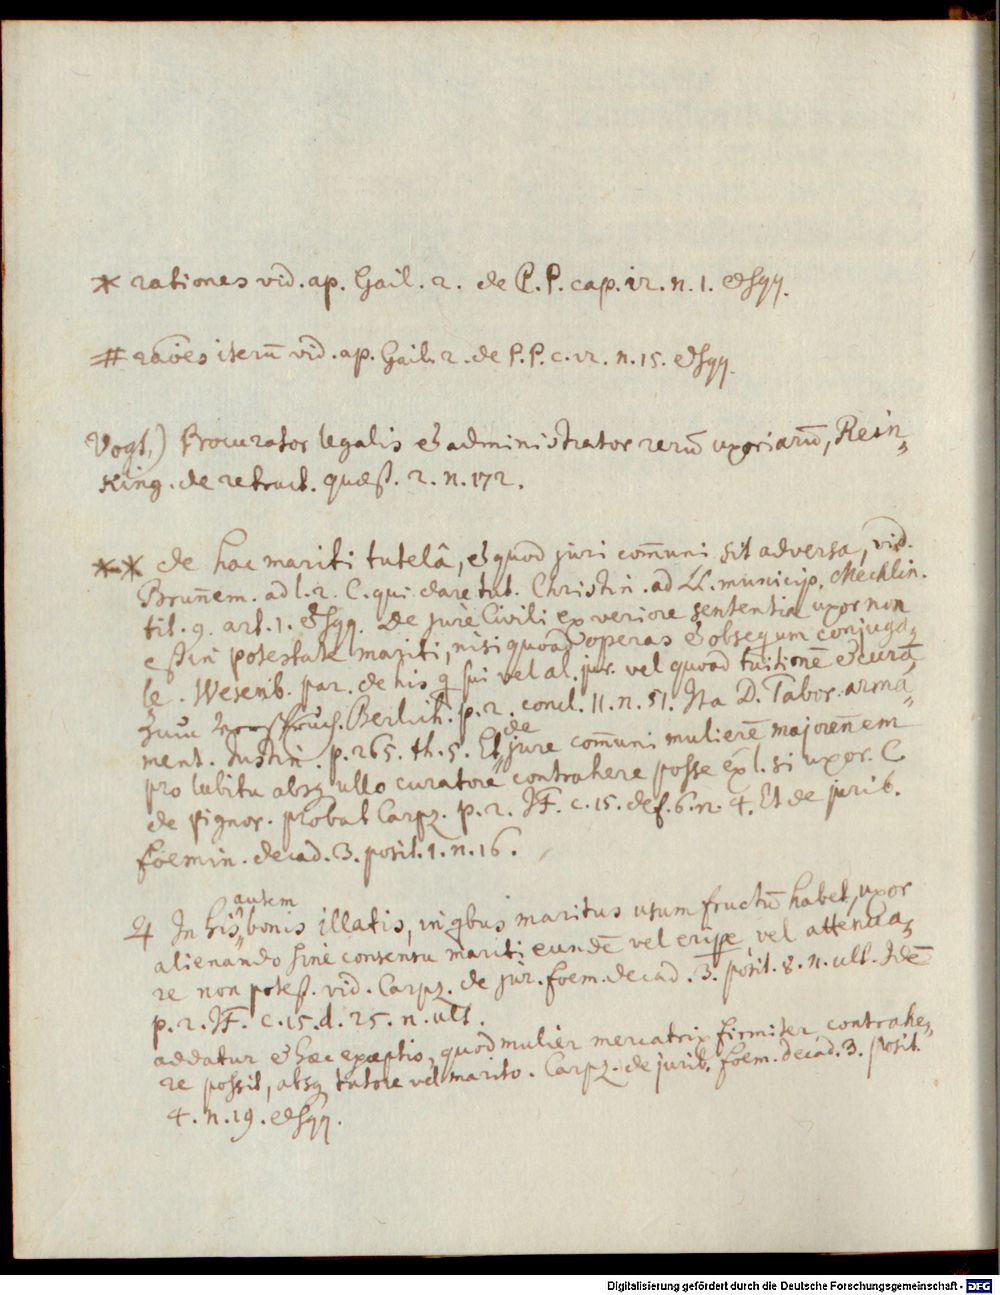 * rationes vid. ap. Gail. 2. de P. P. cap. 12. n. 1. & sqq.
# raōēs iterū vid. ap. Gail. 2. de P. P. c. 12. n. 15. & sqq.
Vogt,) Procurator legalis & administrator rerū uxoriarū, Rein„
King. de retract. quæst. 2. n. 172.
** de hac mariti tutelâ, & quod juri com̄uni sit adversa, vid.
Brun̄em. ad l. 2. C. qui dare tut. Christin. ad LL. municip. Mechlin.
tit. 9. art. 1. & sqq. De jure Civili ex veriore sententia uxor non
est in potestate mariti, nisi quoad operas & obsequm conjuga„
le. Wesenb. par. de his q̄ sui vel al. jur. vel quoad tuitionē & curā„
Zum. Berlich. p. 2. concl. 11. n. 51. Ita D. Tabor. arma„
ment. Justin. p. 265. th. 5. Et de jure com̄uni mulierē majoren̄em
pro lubitu absq ullo curatore contrahere posse ex l. si uxor. C
de pignor. probat Carpz. p. 2. JF. c. 15. def. 6. n. 4. Et de jurib.
foemin. decad. 3. posit. 1. n. 16.
♃ In his autem bonis illatis, in qbus maritus usum fructū habet, uxor
alienando sine consensu mariti eundē vel eripe, vel attenua„
re non potest. vid. Carpz. de jur. foem. decad. 3. posit. 8. n. ult. Idē
p. 2. JF. c. 15. d. 25. n. ult.
addatur & hæc exceptio, quod mulier mercatrix firmiter contrahe„
re possit, absq tutore vel marito. Carpz. de jurib. foem. decad. 3. posit.
4. n. 19. & sqq.
Digitalisierung gefördert durch die Deutsche Forschungsgemeinschaft - DFG